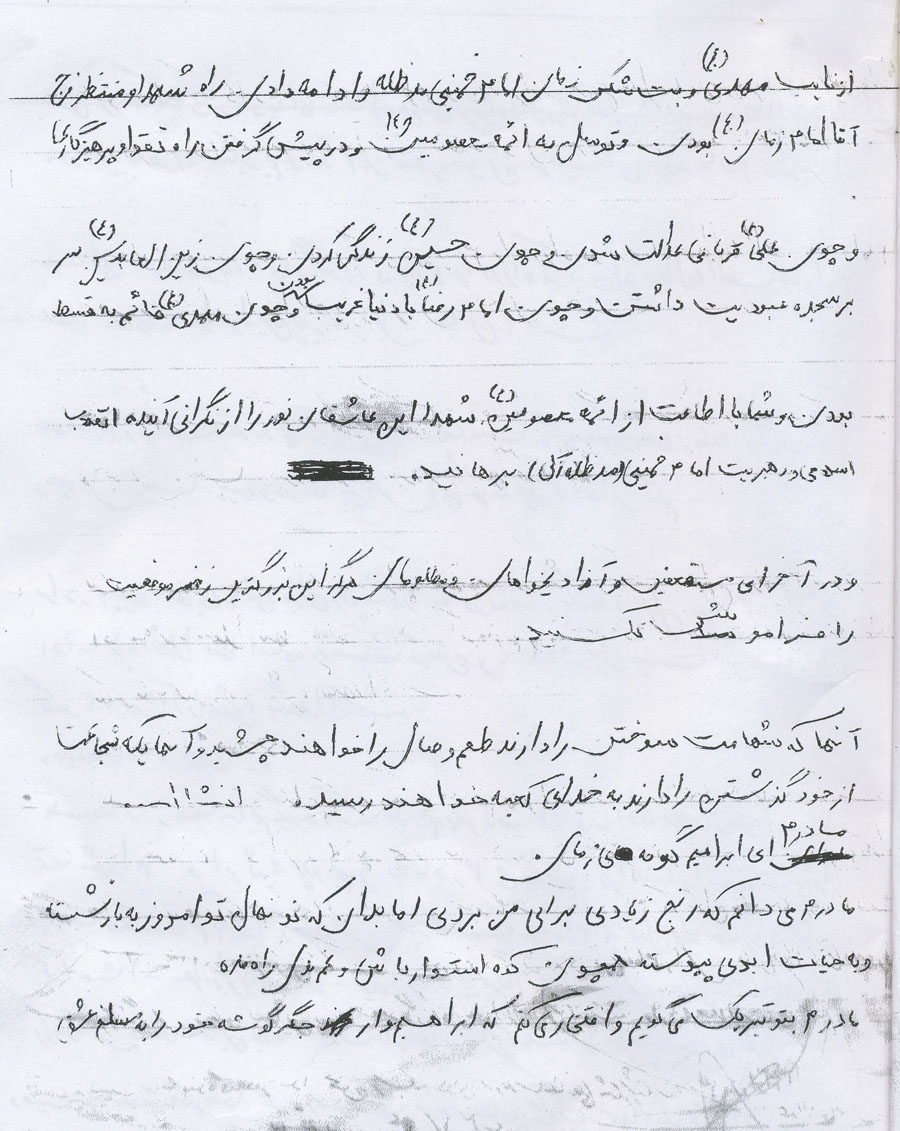 از نایب مهدی (ع) و بت شکن زمان امام خمینی مدظله و ادامه دادن راه شهدا و منتظر فرج
آقا امام زمان (ع) بودن و توسل به ائمه معصومین (ع) و در پیش گرفتن راه تقوا و پرهیزگاری
و چون علی (ع) قربانی عدالت شدن و چون حسین (ع) زندگی کردن و چون زین العابدین (ع) سر
بر سجده عبودیت داشتن و چون امام رضا (ع) با دنیا غریب بودن و چون مهدی (ع) قائم به قسط
بودن و شما با اطاعت از ائمه معصومین (ع) شهدا این عاشقان نور را از نگرانی آینده انقلاب
اسلامی و رهبریت امام خمینی (مدظله) برهانید.
و در آخر ای مستضعفین و آزادیخواهان و مظلومان هرگز این بزرگترین رمز موفقیت
را فراموش نکنید.
آنها که شهامت سوختن را دارند طعم وصال را خواهند چشید و آنهایکه شجاعت
از خود گذشتن را دارند به خدای کعبه خواهند رسید. انشاالله
مادرم ای ابراهیم گونه زمان.
مادرم می دانم که رنج زیادی برای من بردی اما بدان که نو نهال تو امروز به بار نشسته
و به حیات ابدی پیوسته همچون کوه استوار باش و غم بدل راه مده
مادرم بتو تبریک می گویم و افتخار می کنم که ابراهیم وار جگر گوشه خود را به مسلخ عشق